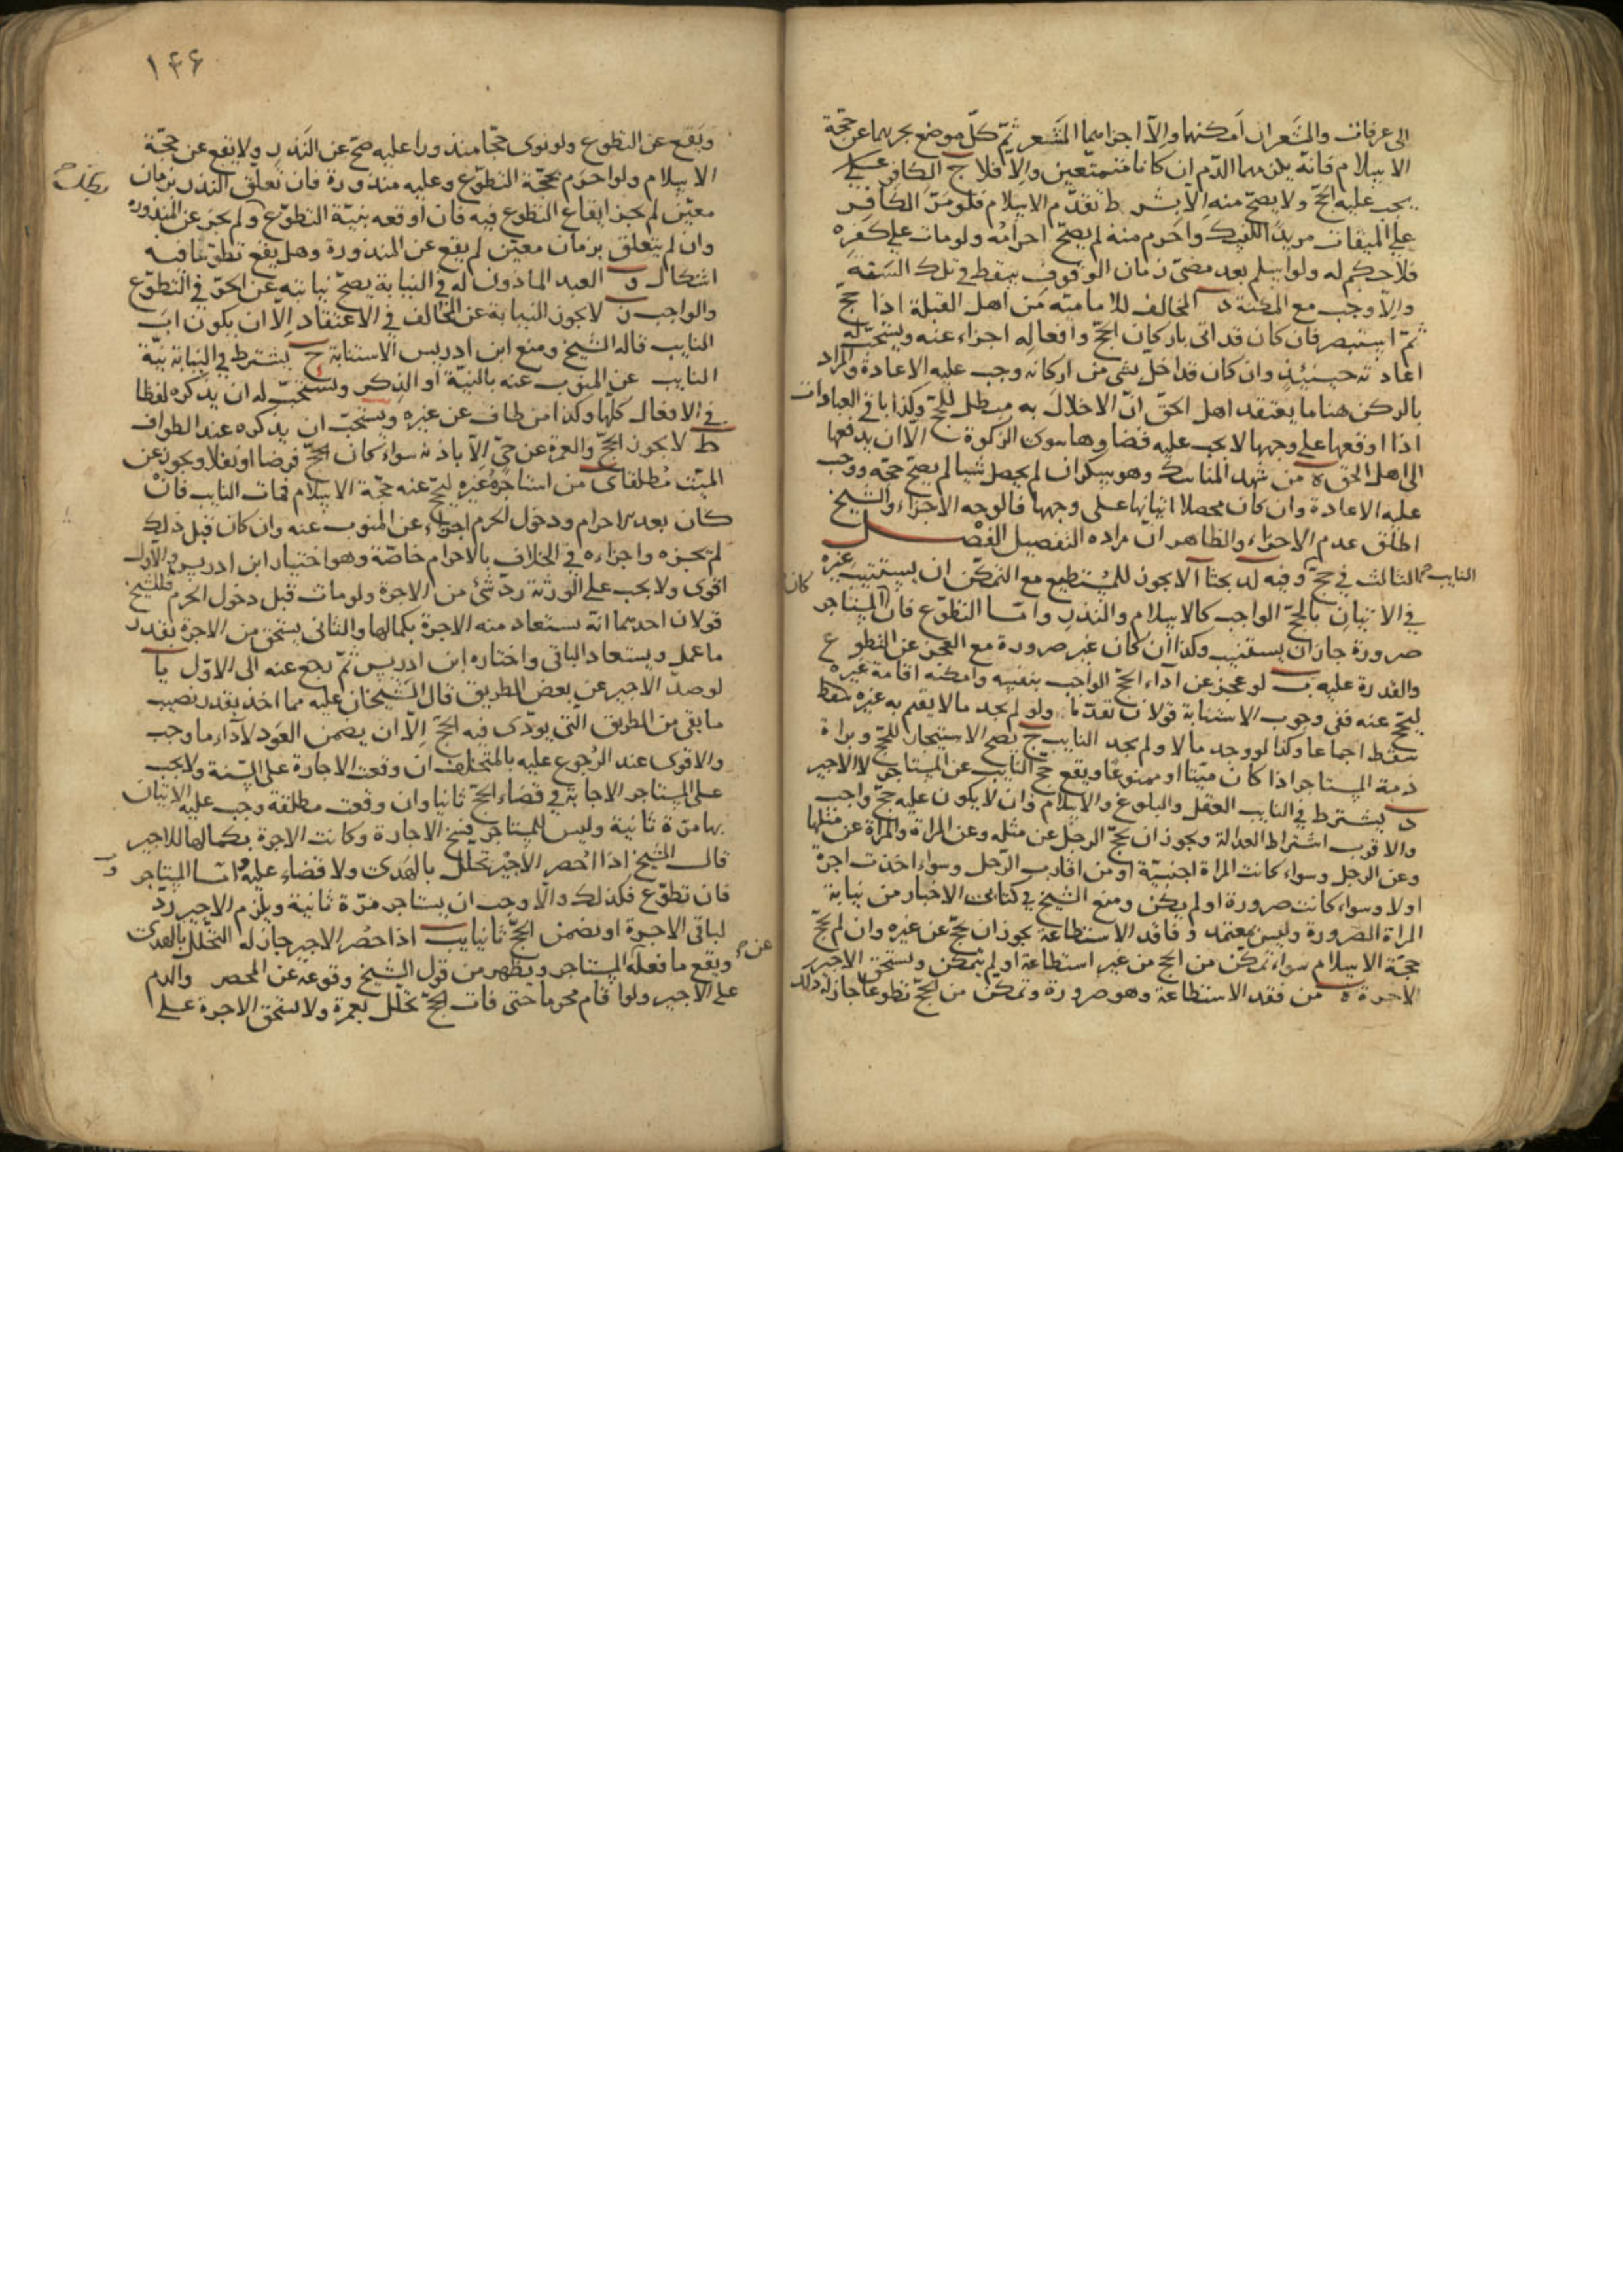 الى عرفات والمشعر ان امكنهما والا اجزاهما المشعر ثم كل موضع يجزيهما عن حجة
الاسلام فانه يلزمهما الدم ان كانا متمتعين والا فلا ج الكافر
يجب عليه الحج ولا يصح منه الا بشرط تقدم الاسلام فلو مر الكافر
على الميقات مريدا للنسك واحرم منه لم يصح احرامه ولو مات على كفره
فلا حكم له ولو اسلم بعد مضى زمان الوقوف سقط في تلك السنة
والا وجب مع المكنة د المخالف للامامية من اهل القبلة اذا حج
ثم استبصر فان كان قد اتى باركان الحج وافعاله اجزاء عنه ويستحب له
اعادته حينئذ وان كان قد اخل بشى من اركانه وجب عليه الاعادة والمراد
بالركن هنا ما يعتقد اهل الحق ان الاخلال به مبطل للحج وكذا باقي العبادات
اذا اوقعها على وجهها لا يجب عليه قضاوها سوى الزكوة الا ان يدفعها
الى اهل الحق ه من شهد المناسك وهو سكران لم يحصل شيا لم يصح حجه ووجب
عليه الاعادة وان كان محصلا اتيانها على وجهها فالوجه الاجزاء والشيخ
اطلق عدم الاجزاء والظاهر ان مراده التفصيل الفصل
الثالث في حج النايب وفيه لد بحثا ا لا يجوز للمستطيع مع التمكن ان يستنيب غيره
في الاتيان بالحج الواجب كالاسلام والنذر واما التطوع فان كان المستاجر
صرورة جاز ان يستنيب وكذا ان كان غير صرورة مع العجز عن التطوع
والقدرة عليه ب لو عجز عن اداء الحج الواجب بنفسه وامكنه اقامة غيره
ليحج عنه ففي وجوب الاستنابة قولان تقدما ولو لم يجد مالا يقيم به غيره سقط
سقط اجماعا وكذا لو وجد مالا ولم يجد النايب ج يصح الاستيجار للحج وبراة
ذمة المستاجر اذا كان ميتا او ممنوعا ويقع حج النايب عن المستاجر لا الاجير
د يشترط في النايب العقل والبلوغ والاسلام وان لا يكون عليه حج واجب
والاقرب اشتراط العدالة ويجوز ان يحج الرجل عن مثله وعن المراة والمراة عن مثلها
وعن الرجل وسواء كانت المراة اجنبية او من اقارب الرجل وسواء اخذت اجرة
اولا وسواء كانت صرورة او لم يكن ومنع الشيخ في كتابى الاخبار من نيابة
المراة الصرورة وليس بمعتمد وفاقد الاستطاعة يجوز ان يحج عن غيره وان لم يحج
حجة الاسلام سواء تمكن من الحج من غير استطاعة او لم يتمكن ويستحق الاجير
الاجرة ه من فقد الاستطاعة وهو صرورة وتمكن من الحج تطوعا جاز له ذلك
١٤۶
ويقع عن التطوع ولو نوى حجا منذورا عليه صح عن النذر ولا يقع عن حجة
الاسلام ولو احرم بحجة التطوع وعليه منذورة فان تعلق النذر بزمان
معين لم يجز ايقاع التطوع فيه فان اوقعه بنية التطوع ولم يجز عن المنذورة
وان لم يتعلق بزمان معين لم يقع عن المنذورة وهل يقع تطوعا فيه
اشكال و العبد الماذون له في النيابة يصح نيابته عن الحر في التطوع
والواجب ز لا يجوز النيابة عن المخالف في الاعتقاد الا ان يكون اب
النايب قاله الشيخ ومنع ابن ادريس الاستنابة ح يشترط في النيابة نية
النايب عن المنوب عنه بالنية او الذكر ويستحب له ان يذكره لفظا
في الافعال كلها وكذا من طاف عن غيره ويستحب ان يذكره عند الطواف
ط لا يجوز الحج والعمرة عن حى الا باذنه سواء كان الحج فرضا او نفلا ويجوز عن
الميت مطلقا ى من استاجره غيره ليحج عنه حجة الاسلام فمات النايب فان
كان بعد الاحرام ودخول الحرم اجزاء عن المنوب عنه وان كان قبل ذلك
لم يجزه واجزاه في الخلاف بالاحرام خاصة وهو اختيار ابن ادريس والاول
اقوى ولا يجب على الورثة رد شئ من الاجرة ولو مات قبل دخول الحرم فللشيخ
قولان احدهما انه يستعاد منه الاجرة بكمالها والثاني يستحق من الاجرة بقدر
ما عمل ويستعاد الباقى واختاره ابن ادريس ثم رجع عنه الى الاول يا
لو صد الاجير عن بعض الطريق قال الشيخان عليه مما اخذ بقدر نصيب
ما بقى من الطريق التى يودى فيه الحج الا ان يضمن العود لاداء ما وجب
والاقوى عند الرجوع عليه بالمتخلف ان وقعت الاجارة على السنة ولا يجب
على المستاجر الاجابة في قضاء الحج ثانيا وان وقعت مطلقة وجب عليه الاتيان
بها مرة ثانية وليس للمستاجر فسخ الاجارة وكانت الاجرة بكمالها للاجير
قال الشيخ اذا احصر الاجير تحلل بالهدى ولا قضاء عليه واما المستاجر
فان تطوع فكذلك والا وجب ان يستاجر مرة ثانية ويلزم الاجير رد
لباقى الاجرة او يضمن الحج ثانيا يب اذا احصر الاجير جاز له التحلل بالهدى
ويقع ما فعله عن المستاجر ويظهر من قول الشيخ وقوعه عن المحصر والدم
على الاجير ولو اقام محرما حتى فات الحج تحلل بعمرة ولا يستحق الاجرة على